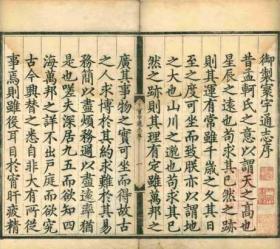 御製寰宇通志序
昔孟軻氏以謂天之高也
星辰之遠也苟求其已然之跡
則其運有常雖千歲之久其日
至之度可坐而得也以謂地
之大也山川之邈也苟求其已
然之跡則其理有常雖萬邦之
廣其事物之實可坐而得故古
之人求博於其約求難於其易
務簡以盡煩務邇以盡遠率猶
是也嗟夫深居九五而欲知四
海萬邦之詳不出戶庭而欲知
古今興替之悉自非大有所從
事焉則雖役耳目於宵旰疲精